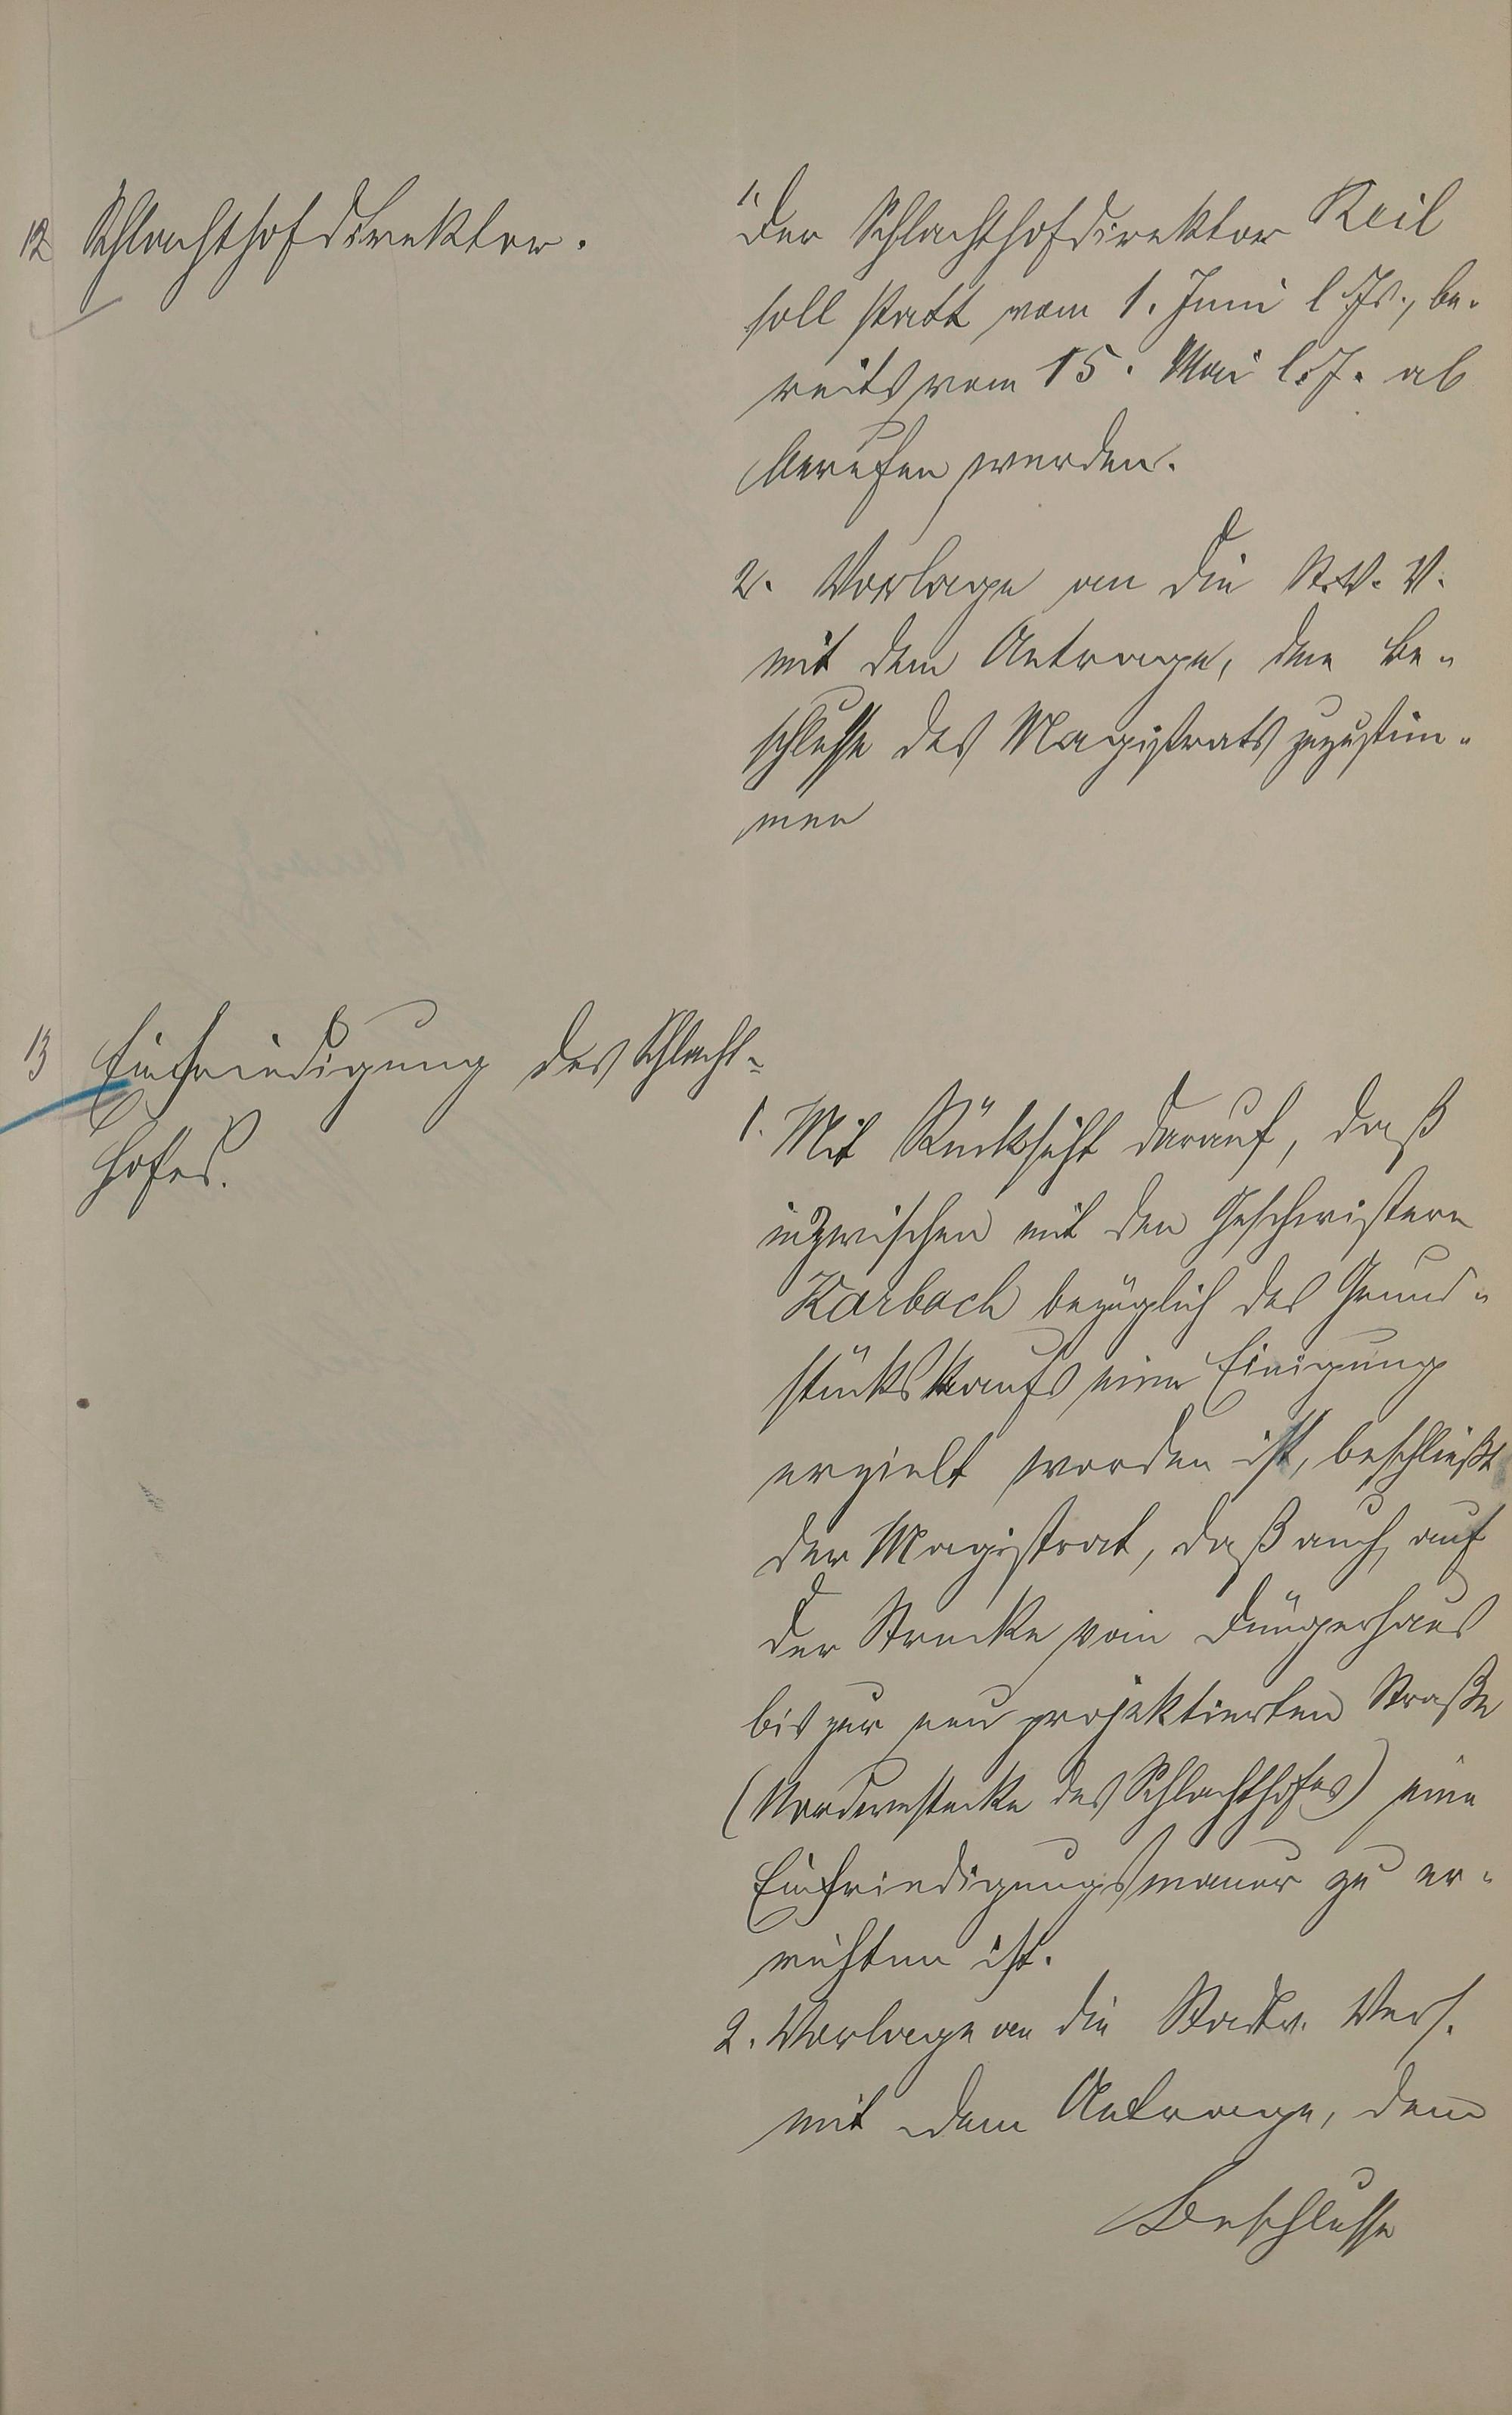 12 Schlachthofdirektor.
1. Der Schlachthofdirektor Keil
soll statt vom 1. Juni l Js., be-
reits vom 15. Mai l. J. ab
berufen werden.
2. Vorlage an die St. V. V.
mit dem Antrage, dem Be-
schlusse des Magistrats zuzustim-
men
13 Einfriedigung des Schlacht-
hofes.
1. Mit Rücksicht darauf, daß
inzwischen mit den Geschwistern
Karbach bezüglich des Grund-
stückskaufs eine Einigung
erzielt worden ist, beschließt
der Magistrat, daß auch auf
der Strecke vom Düngerhaus
bis zur neu projektierten Straße
(Nordwestecke des Schlachthofes) eine
Einfriedigungsmauer zu er-
richten ist.
2. Vorlage an die Stadtv. Vers.
mit dem Antrage, dem
Beschlusse